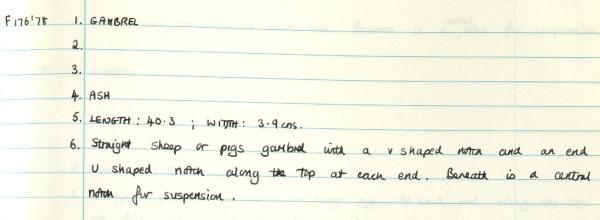 F176'78 1. GAMBREL
2.
3.
4. ASH
5. LENGTH: 40.3 ; WIDTH: 3.9 cms.
6. Straight sheep or pigs gambrel with a v shaped notch and an end
U shaped notch along the top at each end. Beneath is a central
notch for suspension.